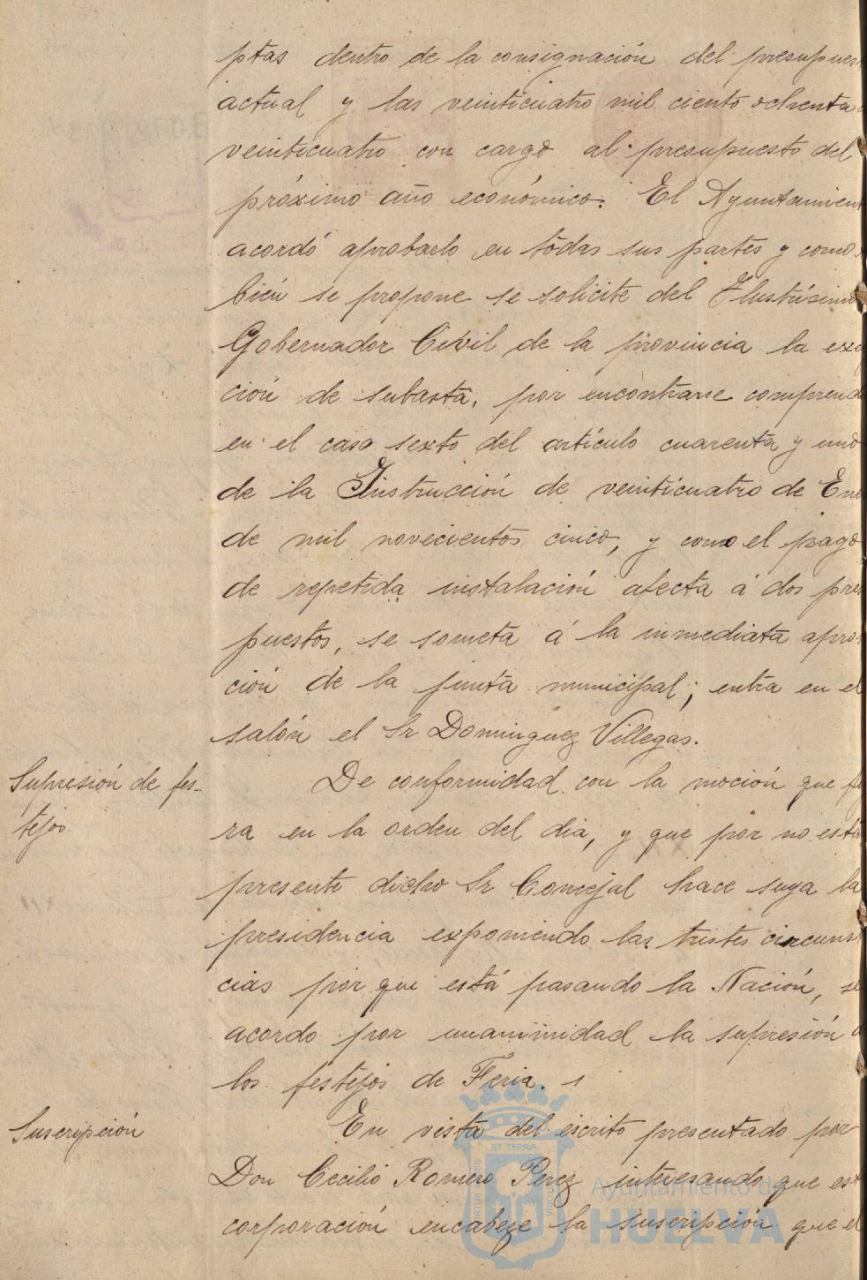 ptas dentro de la consignación del presupues
actual y las veinticuatro mil ciento ochenta
veinticuatro con cargo al presupuesto del
próximo año económico. El Ayuntamient
acordó aprobarlo en todas sus partes y como
bién se propone se solicite del Ilustrísimo
Gobernador Civil de la provincia la exe
ción de subasta, por encontrarse comprend
en el caso sexto del artículo cuarenta y uno
de la Instrucción de veinticuatro de Ene
de mil novecientos cinco, y como el pago
de repetida instalación afecta á dos pre
puestos, se someta á la inmediata apro
ción de la junta municipal; entra en el
salón el Sr Dominguez Villegas.
Supresión de fes-
tejos
De conformidad con la moción que fi
ra en la orden del dia, y que por no está
presente dicho Sr Concejal hace suya la
presidencia exponiendo las tristes circunst
cias por que está pasando la Nación, se
acordo por unanimidad la supresión d
los festejos de Feria.
Suscripción
En vista del escrito presentado por
Don Cecilio Romero Perez interesando que est
corporación encabeze la suscripción que el
Ayuntamiento de
HUELVA